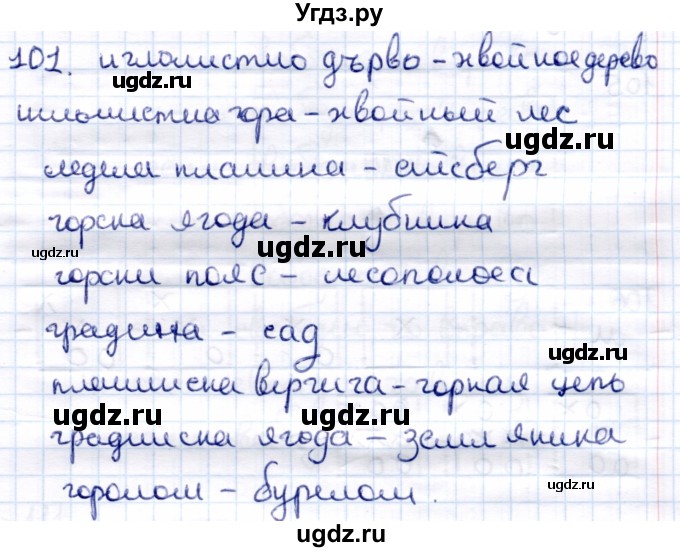 Угдз.ру
101. иглолистно дърво - хвойное дерево
иглолистна гора - хвойный лес
ледена планина - айсберг
горска ягода - клубника
горски пояс - лесополоса
градина - сад
планинска верига - горная цепь
градинска ягода - земляника
горолом - бурелом.
ugdz.ru
ugdz.ru
ugdz.ru
ugdz.ru
ugdz.ru
ugdz.ru
ugdz.ru
ugdz.ru
ugdz.ru
ugdz.ru
ugdz.ru
ugdz.ru